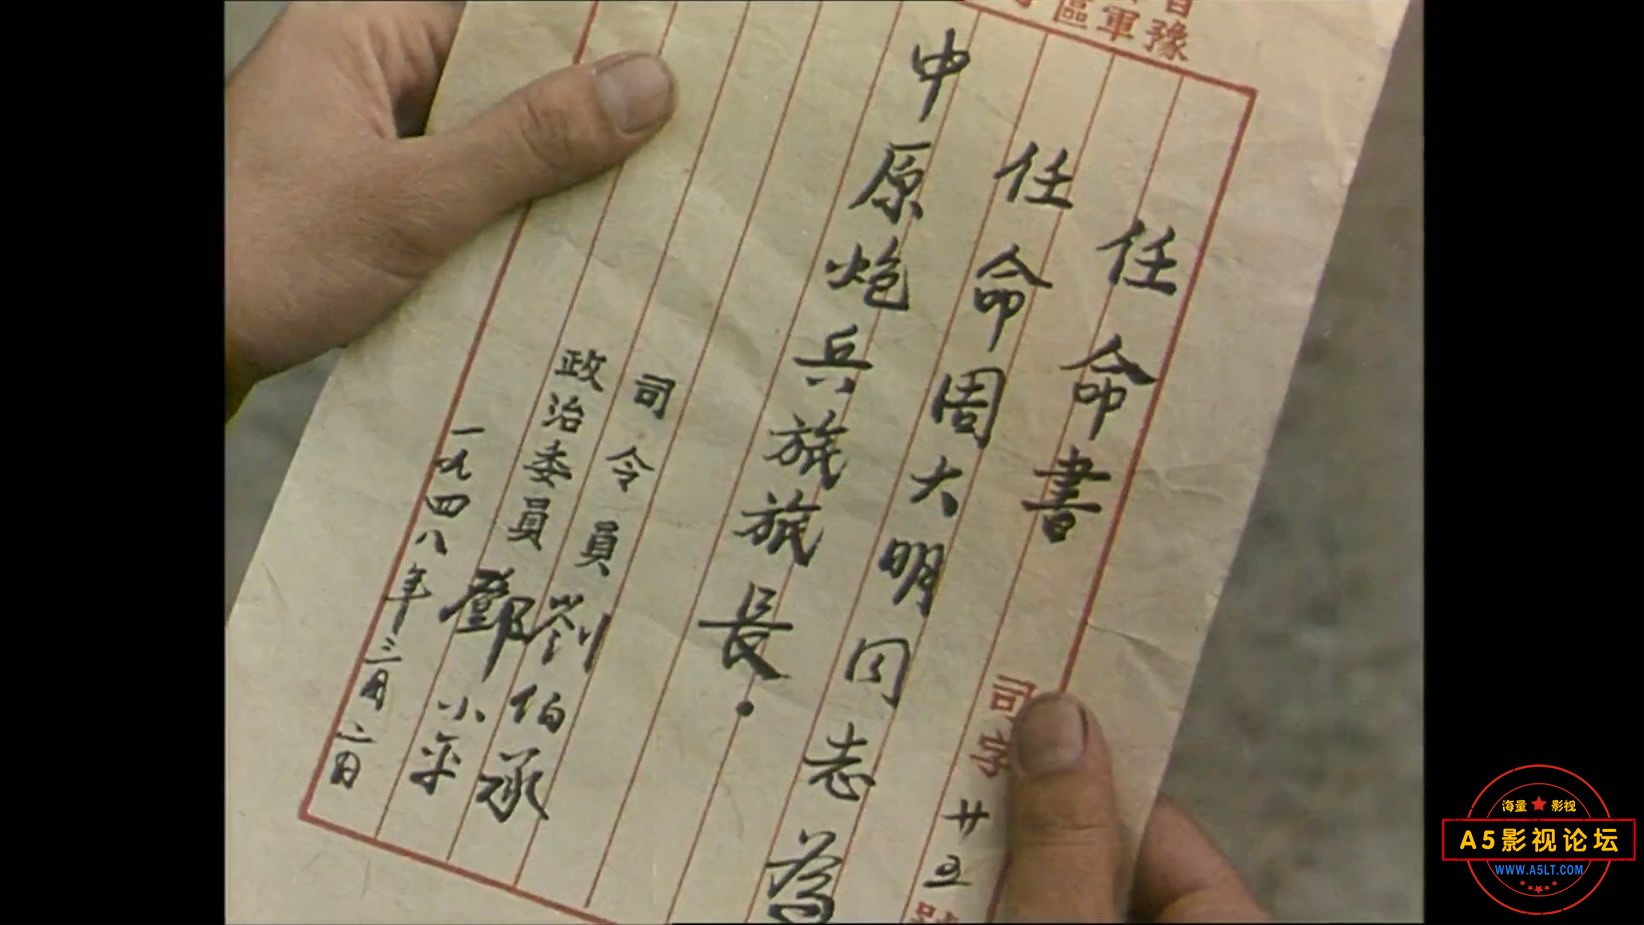 豫
軍區
任命書
司字廿五號
任命周大明同志為
中原炮兵旅旅長.
司令員劉伯承
政治委員鄧小平
一九四八年三月二日
海量★影视
A5影视论坛
WWW.A5LT.COM